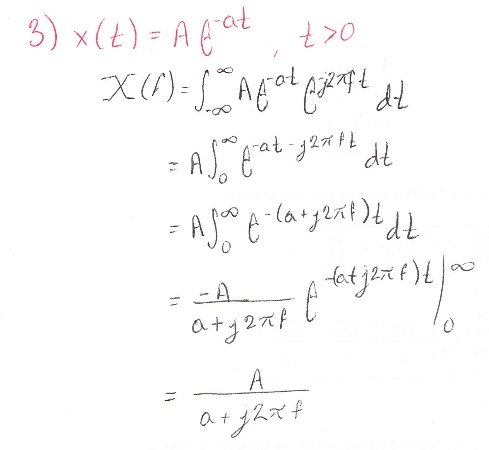 3) x(t) = A e^-at , t>0
X(f) = ∫_-∞^∞ A e^-at e^-j2πft dt
= A ∫_0^∞ e^-at-j2πft dt
= A ∫_0^∞ e^-(a+j2πf)t dt
= -A/(a+j2πf) e^-(a+j2πf)t |_0^∞
= A/(a+j2πf)